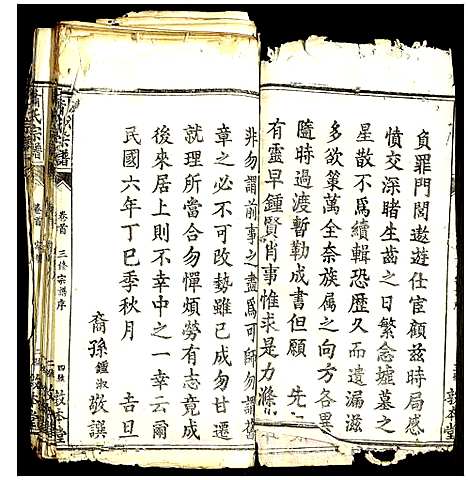 負罪門閭遨遊仕宦顧茲時局感
憤交深睹生齒之日繁念墟墓之
星散不爲續輯恐歷久而遺漏滋
多欲策萬全奈族属之向方各異
隨時過渡暫勒成書但願 先
有靈早鍾賢肖事惟求是力滌
非勿謂前事之盡爲可師勿謂
章之必不可改勢雖已成勿甘遷
就理所當合勿憚煩勞有志竟成
後來居上則不幸中之一幸云爾
民國六年丁巳季秋月 吉旦
裔孫鍾淑敬譔
卷首 三修宗譜序
四 敦本堂
氏宗譜
卷首
敦本堂